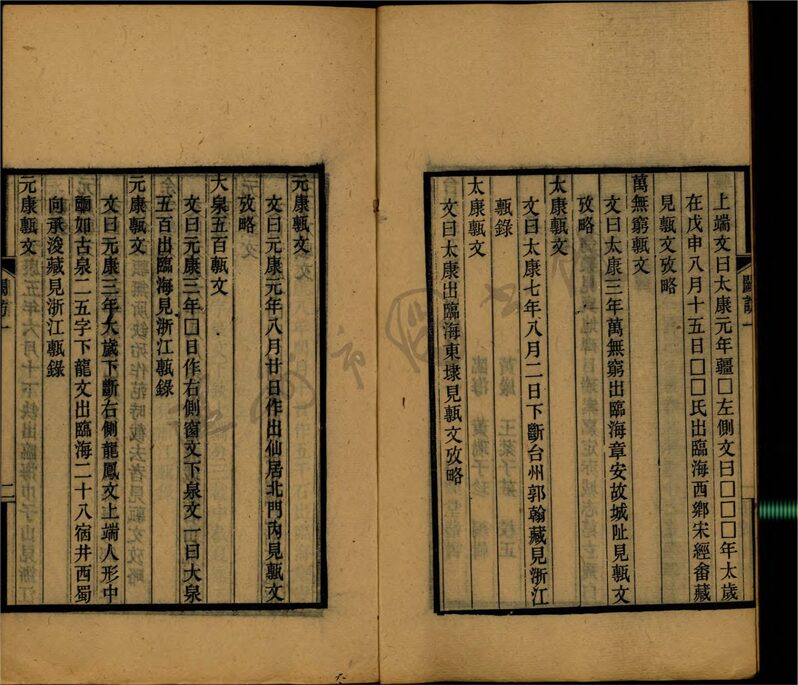 上端文曰太康元年疆□左側文曰□□□年太歲
在戊申八月十五日□□氏出臨海西鄉宋經畬藏
見甎文攷略
萬無窮甎文
文曰太康三年萬無窮出臨海章安故城址見甎文
攷略
太康甎文
文曰太康七年八月二日下斷台州郭翰藏見浙江
甎錄
太康甎文
文曰太康出臨海東埭見甎文攷略
元康甎文
文曰元康元年八月廿日作出仙居北門內見甎文
攷略
大泉五百甎文
文曰元康三年□日作右側窗文下泉文一曰大泉
五百出臨海見浙江甎錄
元康甎文
文曰元康三年太歲下斷右側龍鳳文上端人形中
甎如古泉二五字下龍文出臨海二十八宿井西蜀
向承浚藏見浙江甎錄
元康甎文